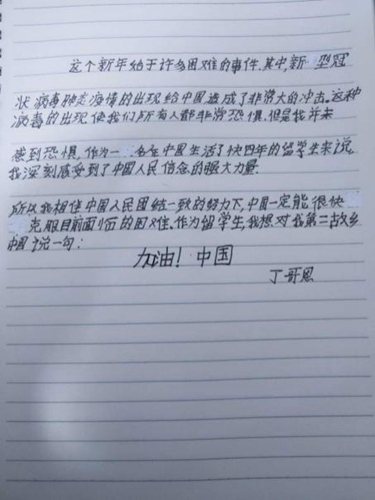 这个新年始于许多困难的事件.其中,新型冠
状病毒肺炎疫情的出现给中国造成了非常大的冲击.这种
病毒的出现使我们所有人都非常恐惧.但是我并未
感到恐惧,作为一名在中国生活了快四年的留学生来说,
我深刻感受到了中国人民信念的强大力量.
所以我相信中国人民团结一致的努力下,中国一定能很快
克服目前面临的困难.作为留学生,我想对我第二故乡
中国说一句:
加油!中国
丁哥恩